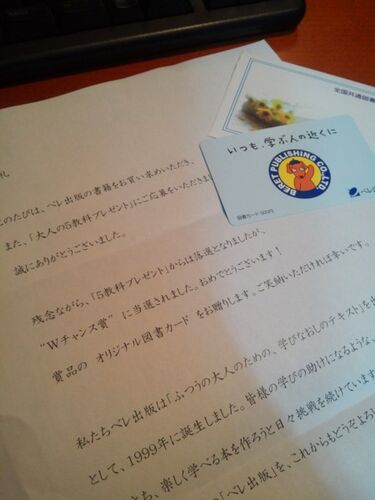 全国共通図書
いつも、学ぶ人の近くに
BERET PUBLISHING CO., LTD.
図書カード 500円
ベレ
礼
このたびは、ベレ出版の書籍をお買い求めいただき、
また、「大人の5教科プレゼント」にご応募をいただきま
誠にありがとうございました。
残念ながら、「5教科プレゼント」からは落選となりましたが、
“Wチャンス賞” に当選されました。おめでとうございます！
賞品の オリジナル図書カード をお贈りします。ご笑納いただければ幸いです。
私たちベレ出版は「ふつうの大人のための、学びなおしのテキスト」を
として、1999年に誕生しました。皆様の学びの助けになるような、
とち、楽しく学べる本を作ろうと日々挑戦を続けています
「ベレ出版」を、これからもどうぞよろ